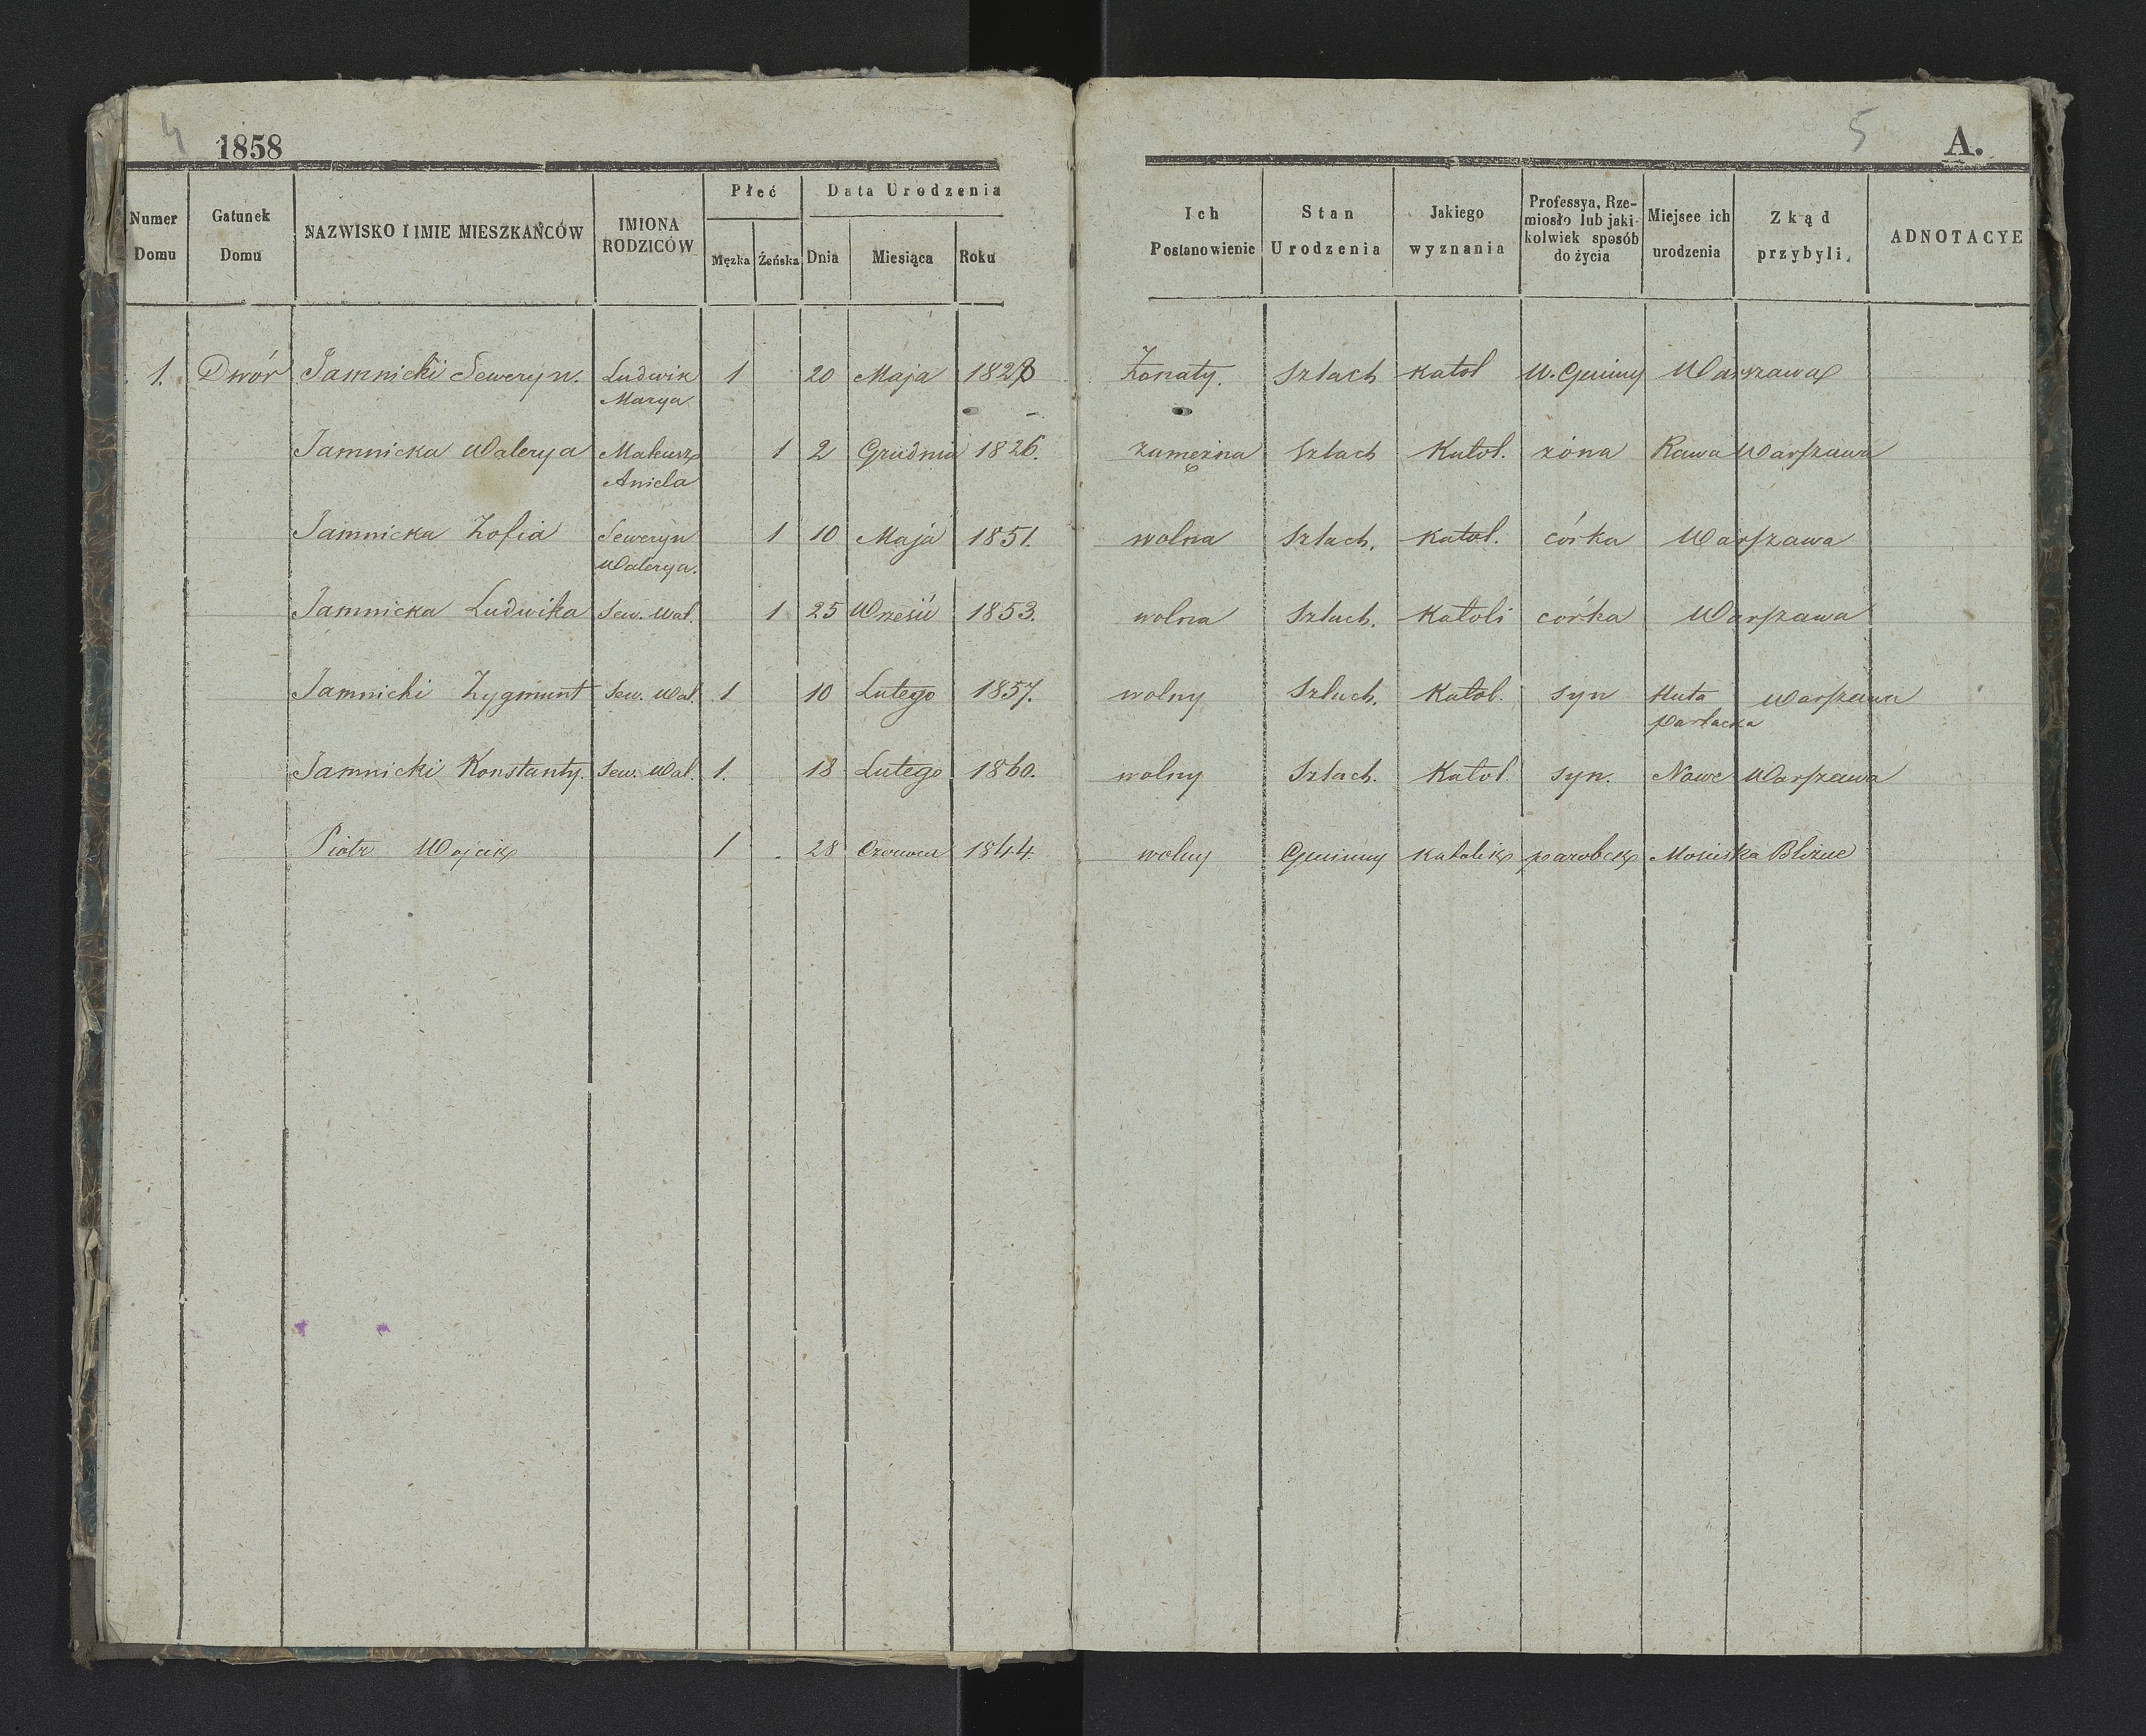 4
1858
5
A.
Numer Domu
Gatunek Domu
NAZWISKO I IMIE MIESZKAŃCÓW
IMIONA RODZICÓW
Płeć
Męzka Żeńska
Data Urodzenia
Dnia Miesiąca Roku
Ich Postanowienie
Stan Urodzenia
Jakiego wyznania
Professya, Rze-
miosło lub jaki-
kolwiek sposób
do życia
Miejsce ich urodzenia
Zkąd przybyli
ADNOTACYE
1. Dwór Jamnicki Seweryn. Ludwik 1 20 Maja 1828 Żonaty. Szlach katol W. Gminy Warszawa
Marya
Jamnicka Walerya Mateusz 1 2 Grudnia 1826. zamężna Szlach Katol. żona Rawa Warszawa
Aniela
Jamnicka Zofia Seweryn 1 10 Maja 1851. wolna Szlach. katol. córka Warszawa
Walerya.
Jamnicka Ludwika Sew. Wal. 1 25 Wrześ 1853. wolna Szlach. Katoli córka Warszawa
Jamnicki Zygmunt Sew. Wal. 1 10 Lutego 1857. wolny Szlach. Katol. syn Huta Warszawa
Jamnicki Konstanty. Sew. Wal. 1. 18 Lutego 1860. wolny Szlach. Katol. syn. Nowe Warszawa
Piotr Wojcik 1 28 Czerwca 1844. wolny Gminny katolik parobek